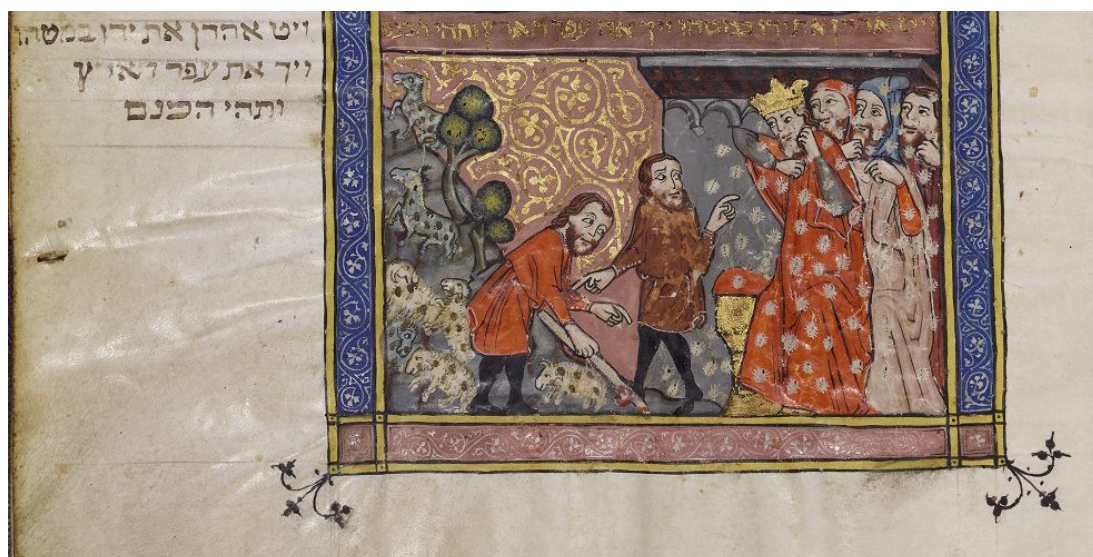 ויט אהרן את ידו במטהו ויך את עפר הארץ ותהי הכנם
ויט אהרן את ידו במטהו
ויך את עפר הארץ
ותהי הכנם